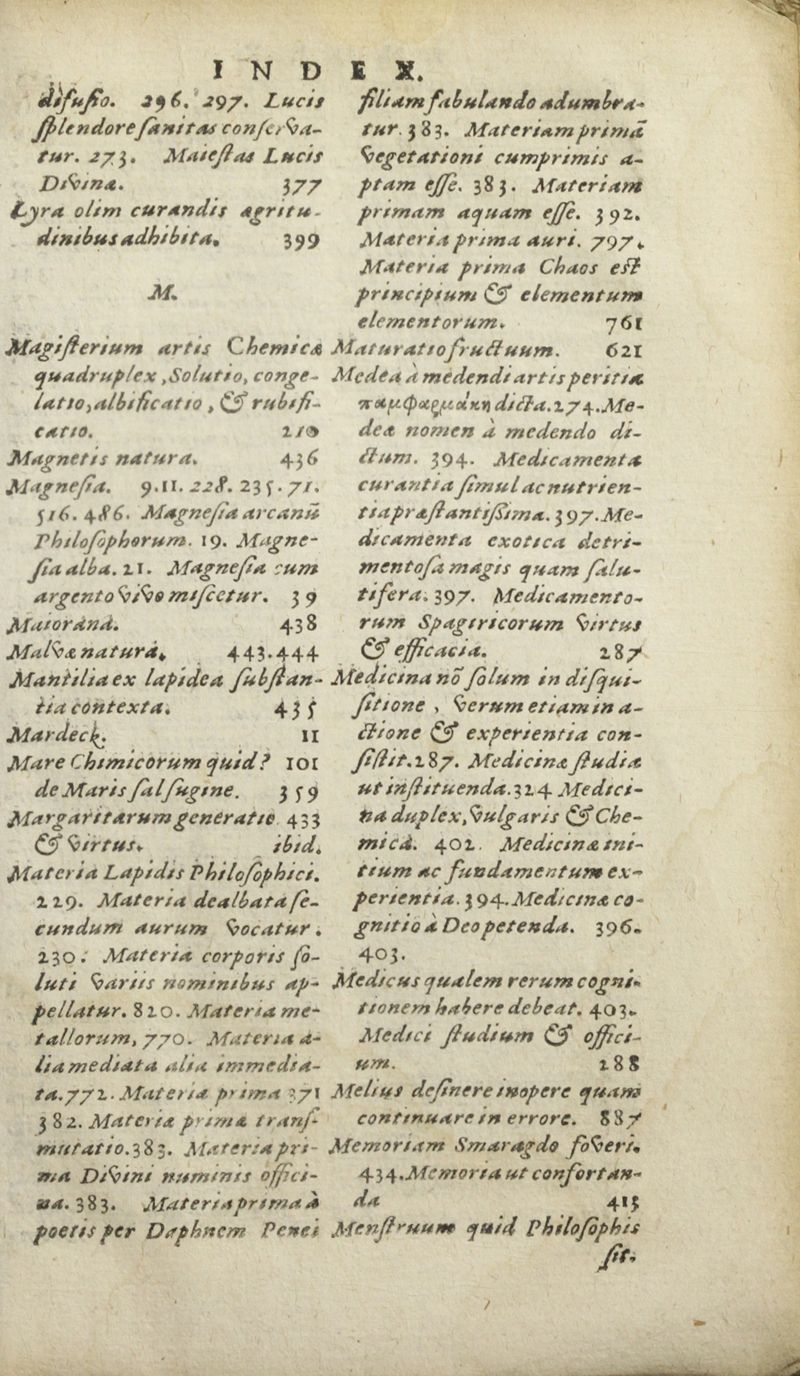 INDEX.
difuſio. 296. 297. Lucis
ſplendore ſanitas conſerva-
tur. 273. Maieſtas Lucis
Divina. 377
Lyra olim curandis agritu-
dinibus adhibita. 399
M.
Magiſterium artis Chemicæ
quadruplex, Solutio, conge-
latio, albificatio, & rubifi-
catio.
Magnetis natura. 436
Magneſia. 9. 11. 228. 235. 71.
516. 486. Magneſia arcanũ
Philoſophorum. 19. Magne-
ſia alba. 21. Magneſia cum
argento vivo miſcetur. 39
Maiorana. 438
Malvæ natura. 443. 444
Mantilia ex lapidea ſubſtan-
tia contexta. 435
Mardeck. 11
Mare Chimicorum quid? 101
de Maris ſalſugine. 359
Margaritarum generatio. 433
& virtus. ibid.
Materia Lapidis Philoſophici.
229. Materia dealbata ſe-
cundum aurum vocatur.
230. Materia corporis ſo-
luti variis nominibus ap-
pellatur. 820. Materia me-
tallorum, 770. Materia a-
lia mediata alia immedia-
ta. 772. Materia prima 371
382. Materia prima tranſ-
mutatio. 383. Materia pri-
ma Divini numinis offici-
na. 383. Materia prima à
poetis per Daphnem Penei
filiam fabulando adumbra-
tur. 383. Materiam primã
vegetationi cumprimis a-
ptam eſſe. 383. Materiam
primam aquam eſſe. 392.
Materia prima auri. 797.
Materia prima Chaos eſt
principium & elementum
elementorum. 761
Maturatio fructuum. 621
Medea à medendi artis peritia
παμφαρμάκη dicta. 274. Me-
dea nomen à medendo di-
ctum. 394. Medicamenta
curantia ſimul ac nutrien-
tia præſtantiſſima. 397. Me-
dicamenta exotica detri-
mentoſa magis quam ſalu-
tifera. 397. Medicamento-
rum Spagiricorum virtus
& efficacia. 287
Medicina nõ ſolum in diſqui-
ſitione, verum etiam in a-
ctione & experientia con-
ſiſtit. 287. Medicinæ ſtudia
ut inſtituenda. 324. Medici-
na duplex, vulgaris & Che-
mica. 402. Medicinæ ini-
tium ac fundamentum ex-
perientia. 394. Medicinæ co-
gnitio à Deo petenda. 396.
403.
Medicus qualem rerum cogni-
tionem habere debeat. 403.
Medici ſtudium & offici-
um. 288
Melius deſinere in opere quam
continuare in errore. 887
Memoriam Smaragdo foveri.
434. Memoria ut confortan-
da 415
Menſtruum quid Philoſophis
ſit.